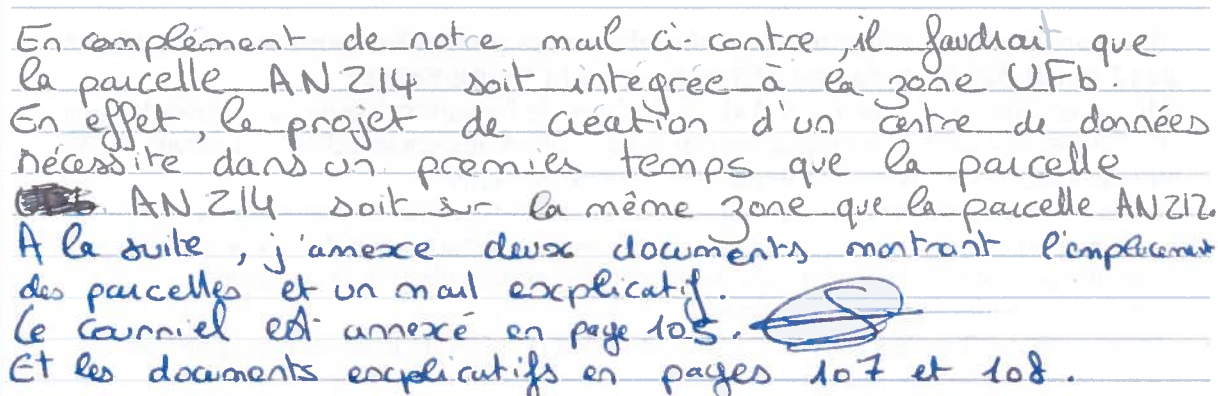 En complément de notre mail ci-contre, il faudrait que
la parcelle AN 214 soit intégrée à la zone UFb.
En effet, le projet de création d'un centre de données
nécessite dans un premier temps que la parcelle
AN 214 soit sur la même zone que la parcelle AN 212.
A la suite, j'annexe deux documents montrant l'emplacement
des parcelles et un mail explicatif.
Le courriel est annexé en page 105.
Et les documents explicatifs en pages 107 et 108.